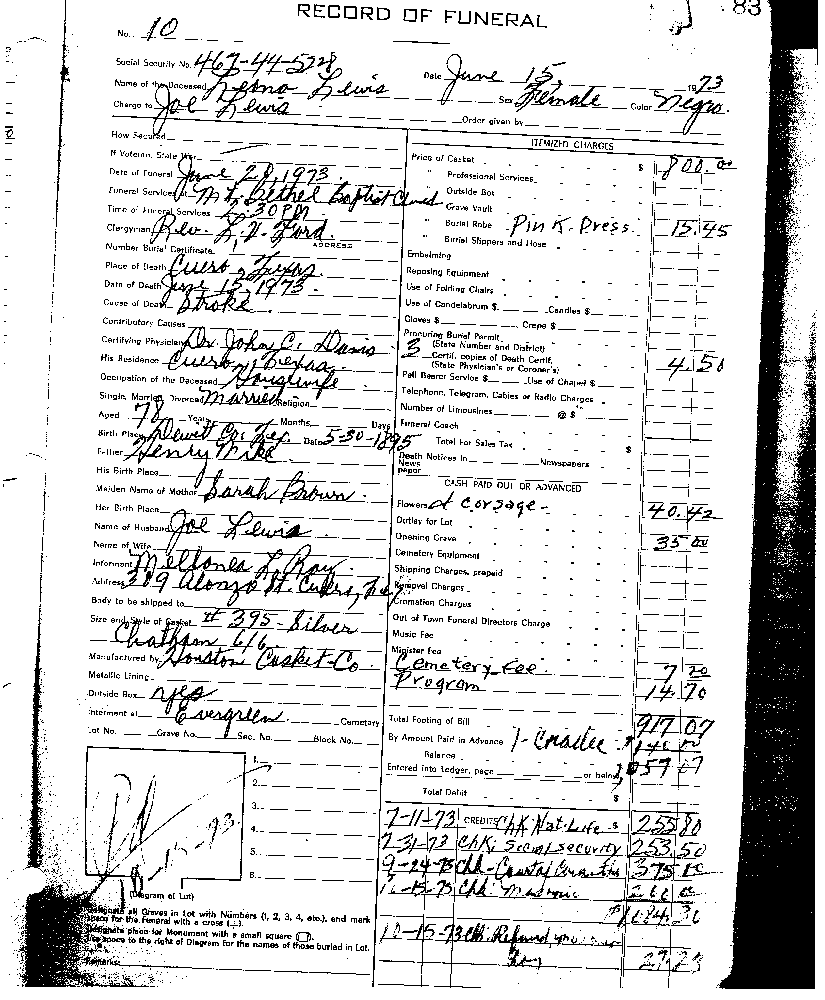 RECORD OF FUNERAL
83
No. 10
Social Security No. 467-44-5728
Date June 15, 1973
Name of the Deceased Leona Lewis
Sex Female Color Negro.
Charge to Joe Lewis
Order given by
How Secured
If Veteran, State War
Date of Funeral June 20, 1973
Funeral Services at Mt. Bethel Baptist Church
Time of Funeral Services 2:30 PM
Clergyman Rev. L. V. Ford.
ADDRESS
Number Burial Certificate
Place of Death Cuero, Texas
Date of Death June 15, 1973
Cause of Death Stroke
Contributory Causes
Certifying Physician Dr. John C. Davis
His Residence Cuero, Texas
Occupation of the Deceased Housewife
Single, Married, Divorced Married Religion
Aged 78 Years Months Days
Birth Place Dewitt Co. Tex. Date 5-30-1895
Father Henry Mike
His Birth Place
Maiden Name of Mother Sarah Brown
Her Birth Place
Name of Husband Joe Lewis
Name of Wife
Informant L. Ray
Address 309 Alonzo St. Cuero, Tex
Body to be shipped to
Size and Style of Casket # 395 - Silver
Chatham 6/6
Manufactured by Houston Casket Co.
Metallic Lining
Outside Box yes
Interment at Evergreen Cemetery
Lot No. Grave No. Sec. No. Block No.
1.
2.
3.
4.
5.
6.
(Diagram of Lot)
Designate all Graves in Lot with Numbers (1, 2, 3, 4, etc.), and mark
space for the Funeral with a cross
Designate place for Monument with a small square
Use space to the right of Diagram for the names of those buried in Lot.
Remarks:
ITEMIZED CHARGES
Price of Casket $ 800.00
" Professional Services
" Outside Box
" Grave Vault
" Burial Robe Pink Dress 15.45
" Burial Slippers and Hose
Embalming
Reposing Equipment
Use of Folding Chairs
Use of Candelabrum $ Candles $
Gloves $ Crepe $
Procuring Burial Permit
(State Number and District)
3 Certif. copies of Death Certif. 4.50
(State Physician's or Coroner's)
Pall Bearer Service $ Use of Chapel $
Telephone, Telegram, Cables or Radio Charges
Number of Limousines @ $
Funeral Coach
Total For Sales Tax $
Death Notices in Newspapers
News
paper
CASH PAID OUT OR ADVANCED
Flowers & corsage - 40.42
Outlay for Lot
Opening Grave 35 00
Cemetery Equipment
Shipping Charges, prepaid
Removal Charges
Cremation Charges
Out of Town Funeral Directors Charge
Music Fee
Minister Fee
Cemetery Fee 7 00
Program 14.70
Total Footing of Bill 917 07
By Amount Paid in Advance 140 00
Balance
Entered into Ledger, page or below 1,057 07
Total Debit $
7-11-73 CREDITS Chk Nat. Life $ 255 80
7-31-73 Chk. Social Security 253 50
9-24-73 Chk - 375 00
10-15-73 Chk.
10-15-73 Chk. Refund